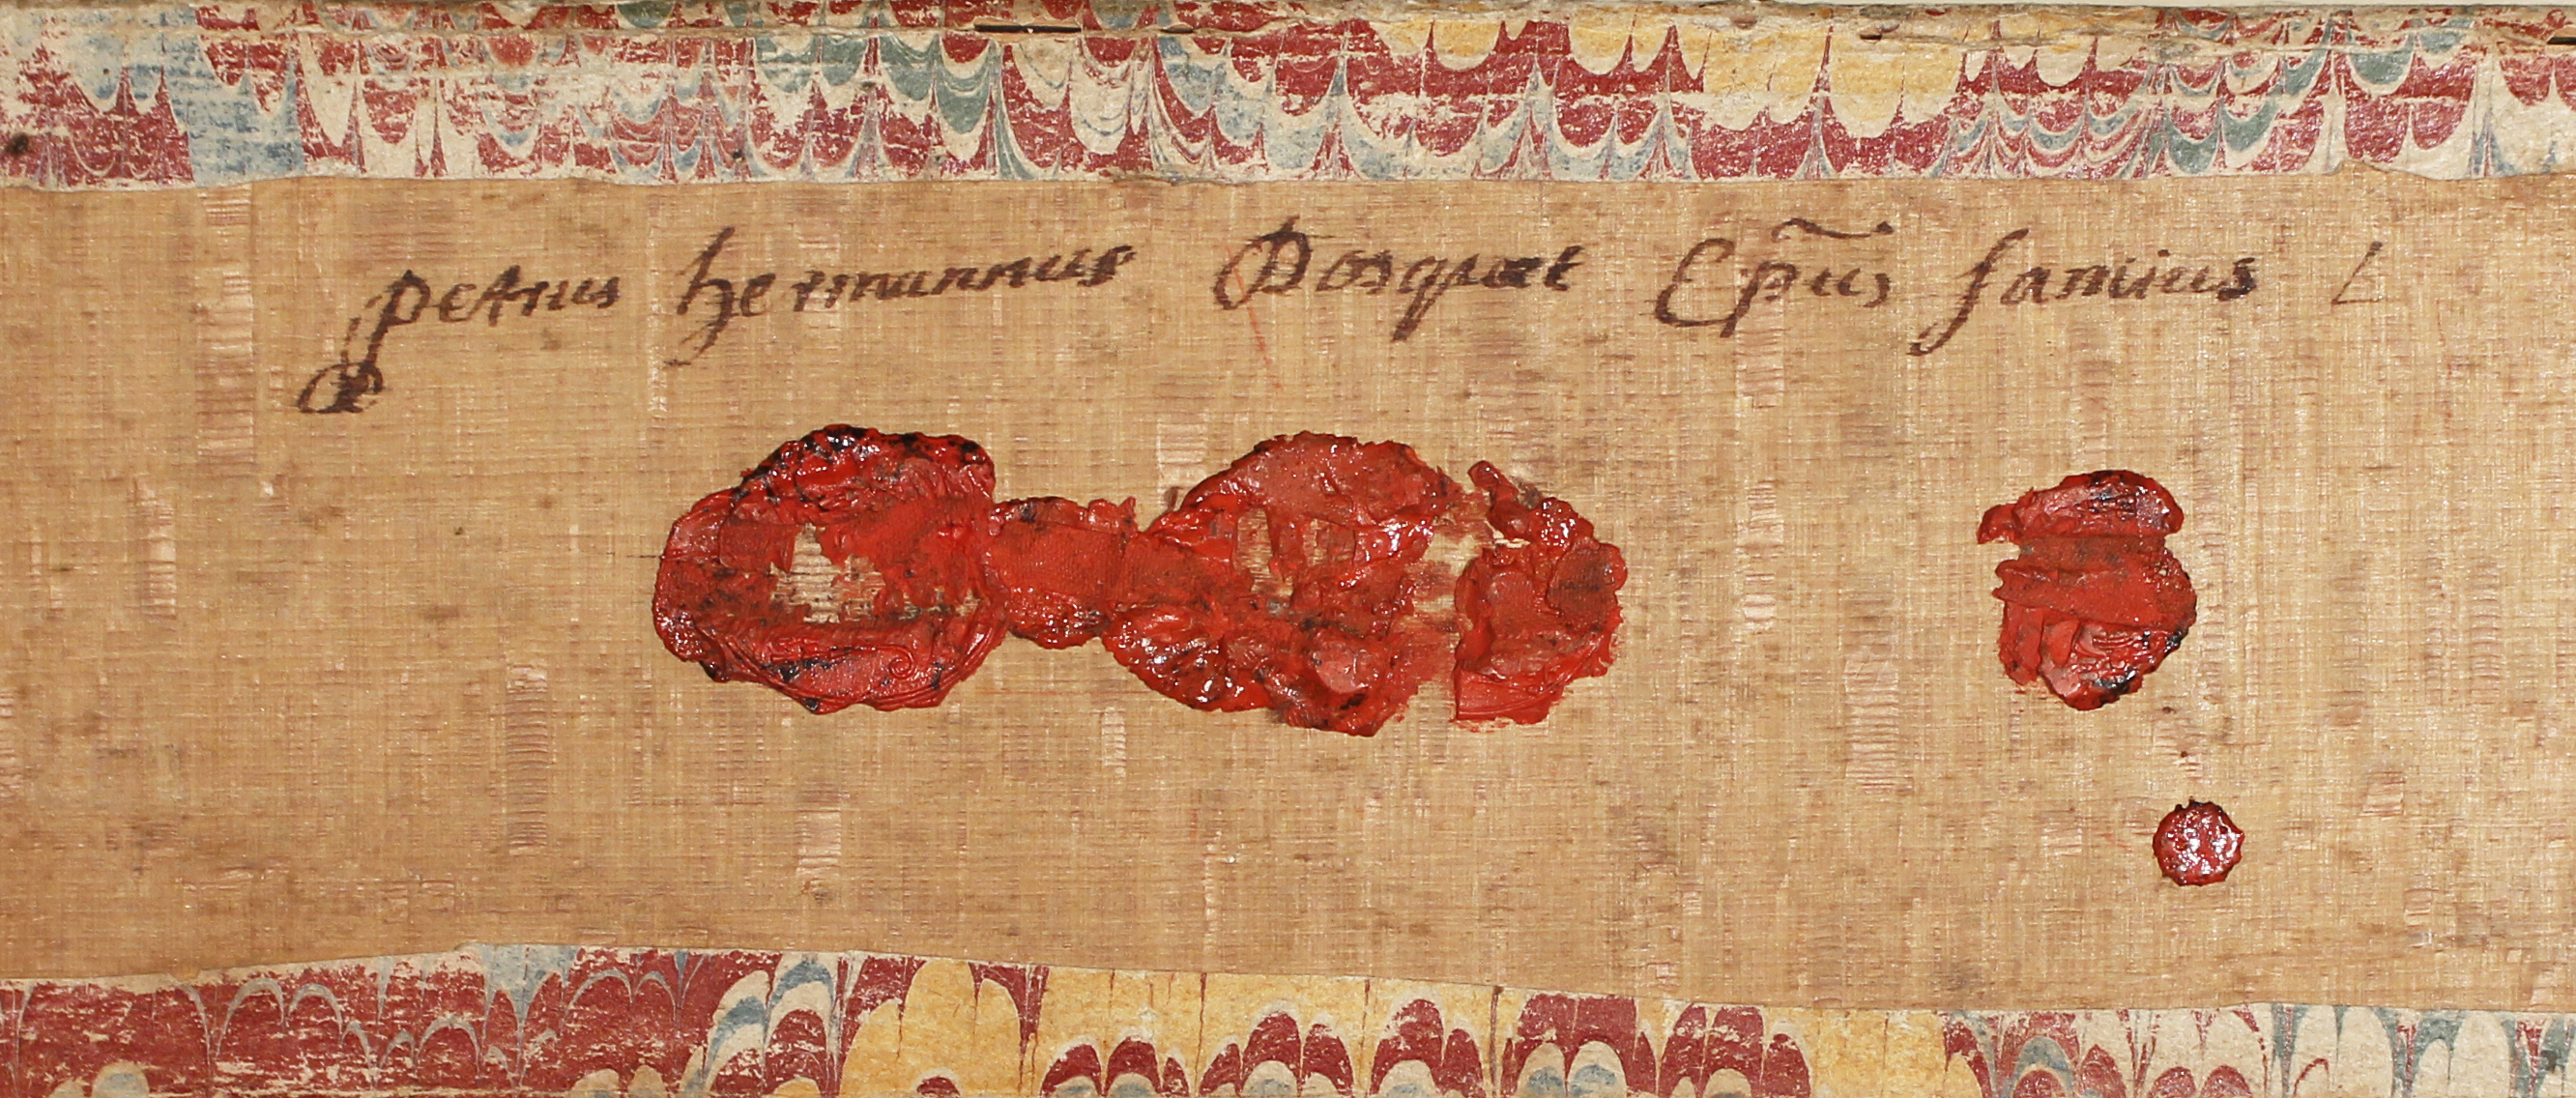 petrus hermannus Dosquet Ep̃us samius L